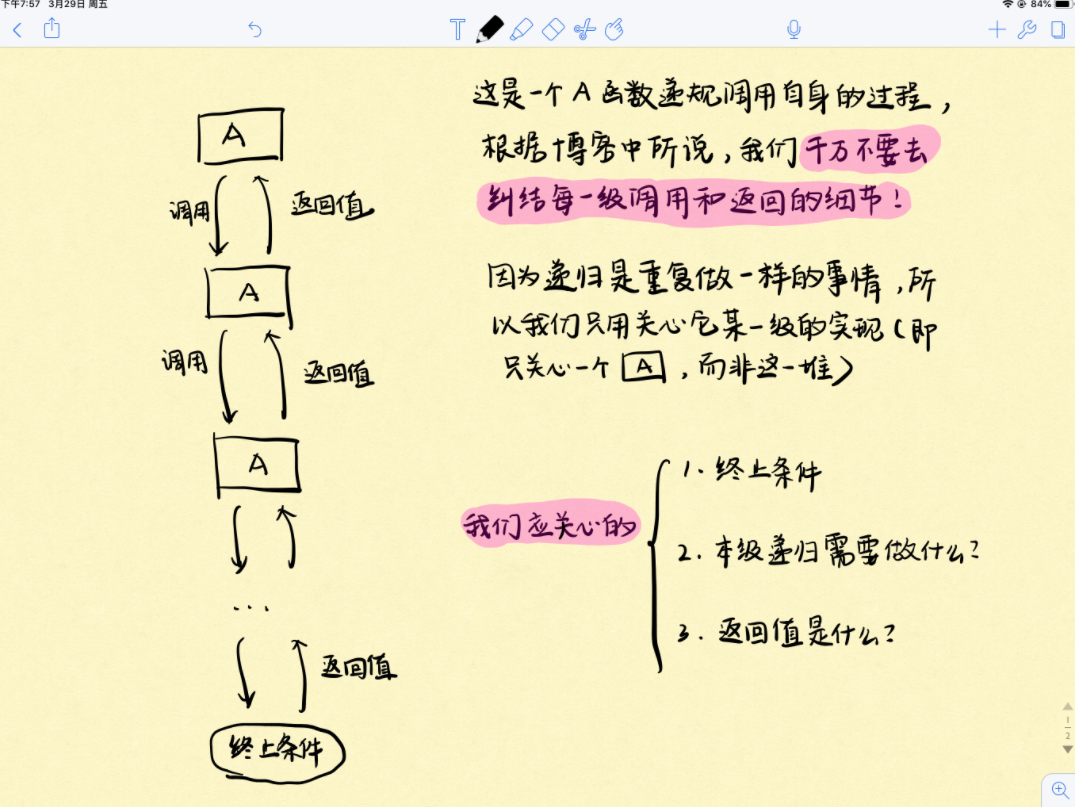 下午7:57 3月29日 周五
84%
T
A
调用
返回值
A
调用
返回值
A
...
返回值
终止条件
这是一个A函数递规调用自身的过程，
根据博客中所说，我们千万不要去
纠结每一级调用和返回的细节！
因为递归是重复做一样的事情，所
以我们只用关心它某一级的实现（即
只关心一个 A ，而非这一堆）
我们应关心的
1. 终止条件
2. 本级递归需要做什么？
3. 返回值是什么？
1
2